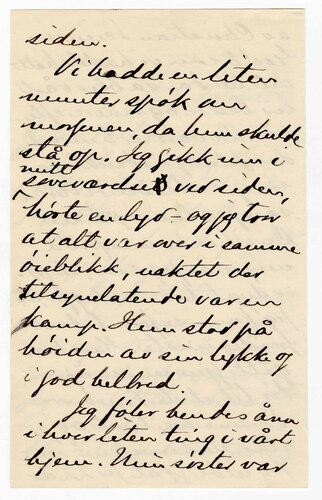 siden.
Vi hadde en liten
munter spøk om
morgenen, da hun skulde
stå op. Jeg gikk inn i
mitt
soveværdse ved siden,
hørte en lyd – og jeg tror
at alt var over i samme
øieblikk, uaktet der
tilsynelatende var en
kamp. Hun stod på
høiden av sin lykke og
i god helbred.
Jeg føler hendes ånd
i hver liten ting i vårt
hjem. Min søster var